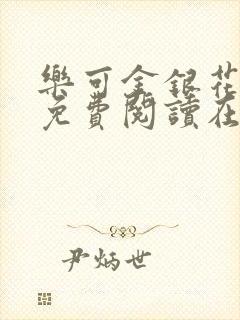 樂可金銀花
免費閱讀在
尹炳世